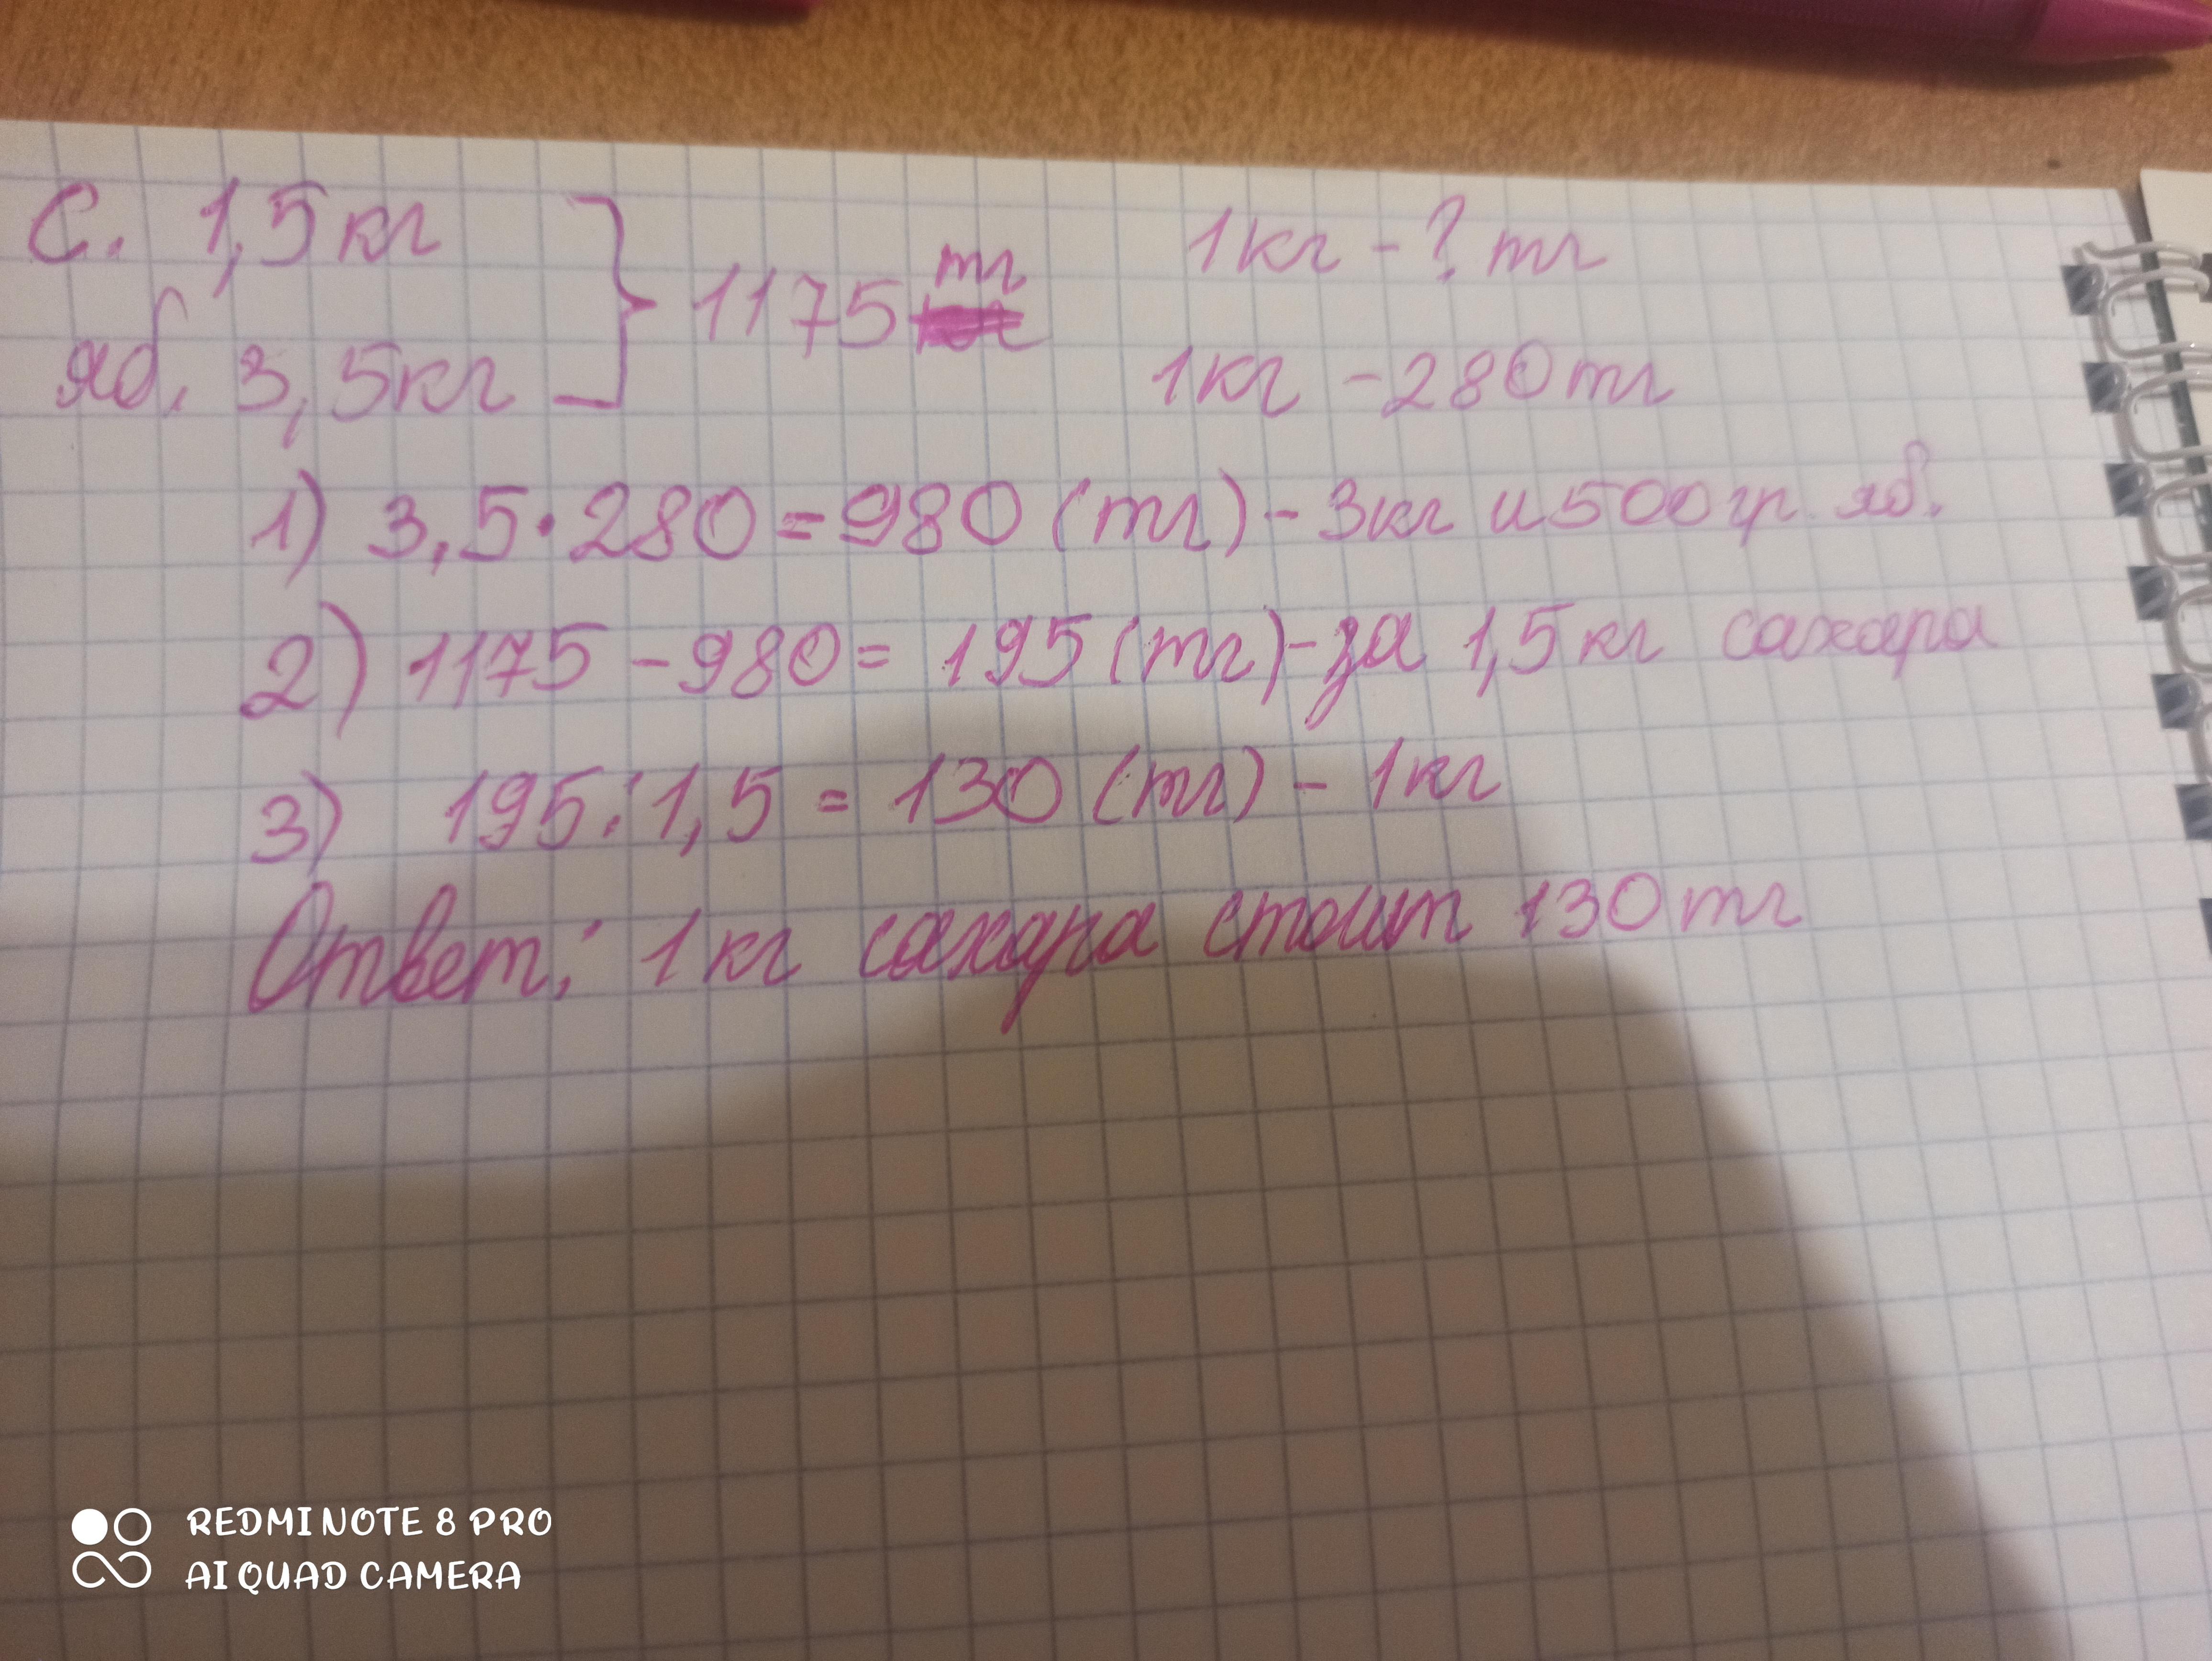 С. 1,5кг } 1175 тг 1кг - ? тг
яб. 3,5кг 1кг - 280тг
1) 3,5·280=980(тг)-3кг и 500гр. яб.
2) 1175-980= 195(тг)-за 1,5кг сахара
3) 195:1,5 = 130(тг) - 1кг
Ответ: 1кг сахара стоит 130тг
REDMI NOTE 8 PRO
AI QUAD CAMERA